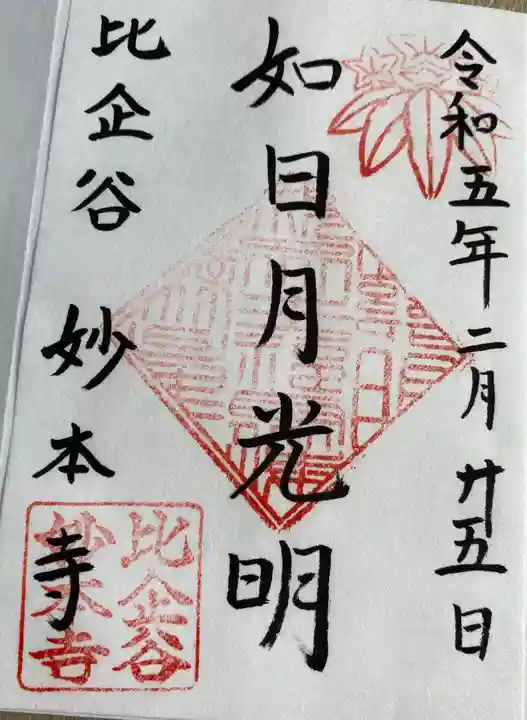 令和五年二月廿五日
如日月光明
比企谷 妙本寺
比企谷
妙本寺